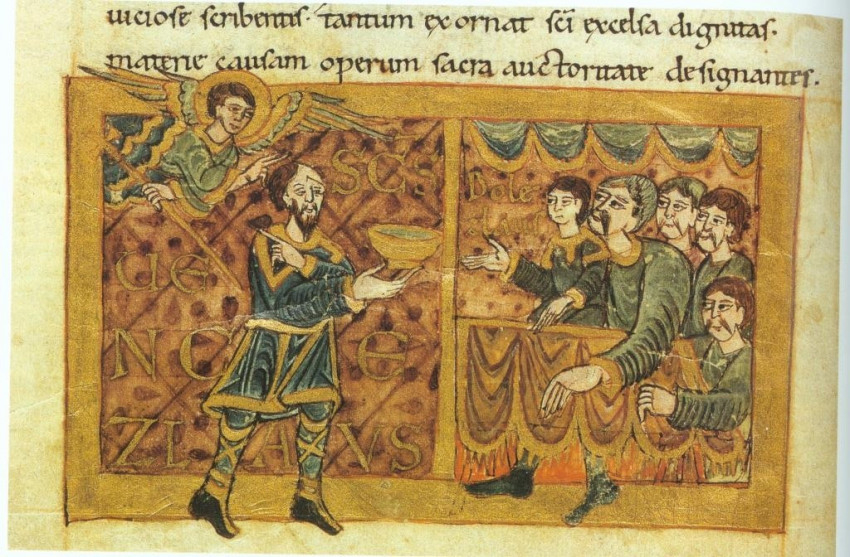 uiciose scribentis· tantum exornat scī excelsa dignitas·
materie causam operum sacra auctoritate designantes.
SCS
VENCEZLAVVS
Bole
zlauus